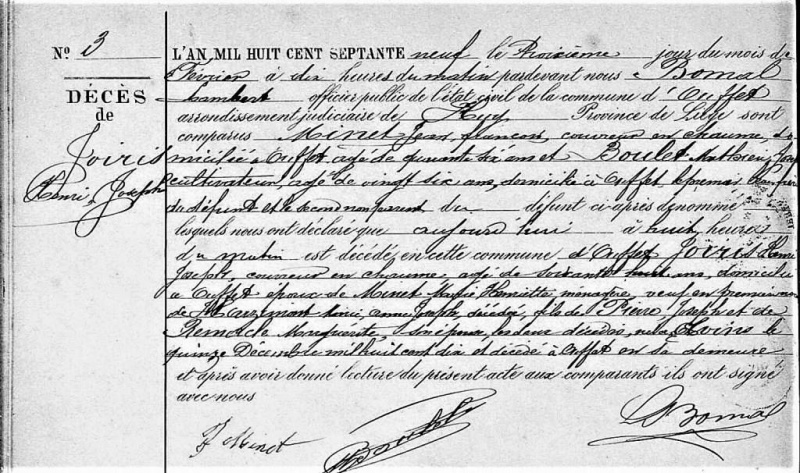 N° 3
DÉCÈS
de
Joiris
Henri, Joseph
L'AN, MIL HUIT CENT SEPTANTE neuf le troisième jour du mois de
Février à dix heures du matin pardevant nous Bomal
Lambert officier public de l'état civil de la commune d'Ouffet
arrondissement judiciaire de Huy Province de Liége sont
comparus Minet Jean françois, couvreur en chaume do
micilié à Ouffet, agé de quarante six ans et Boulet Mathieu
cultivateur, agé de vingt six ans, domicilié à Ouffet le premier
du défunt et le second non parent du défunt ci-après dénommé
lesquels nous ont déclaré que aujourd'hui à huit heures
du matin est décédé, en cette commune d'Ouffet Joiris Henri
Joseph, couvreur en chaume, agé de soixante huit ans, domicilié
à Ouffet époux de Minet Marie Henriette ménagère, veuf en premières
de anne Joseph, décédée, fils de Pierre Joseph et de
Remacle Marguérite, son épouse, les deux décédés, né à le
quinze Décembre mil huit cent dix et décédé à Ouffet en sa demeure
et après avoir donné lecture du présent acte aux comparants ils ont signé
avec nous
J Minet
Boulet
L Bomal